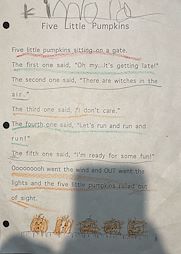 Five Little Pumpkins
Five little pumpkins sitting on a gate.
The first one said, "Oh my...It's getting late!"
The second one said, "There are witches in the
air.."
The third one said, "I don't care."
The fourth one said, "Let's run and run and
run!"
The fifth one said, "I'm ready for some fun!"
Oooooooooh went the wind and OUT went the
lights and the five little pumpkins rolled out
of sight.